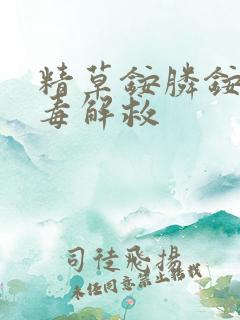 精草銨膦銨
毒解救
司徒飛揚
未经同意禁止转载